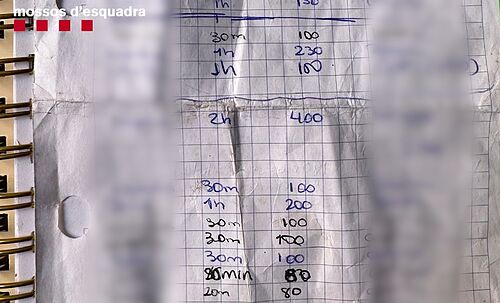 mossos d'esquadra
1h 130
30m 100
1h 230
1h 100
2h 400
30m 100
1h 200
30m 100
30m 100
30m 100
min
20m 80